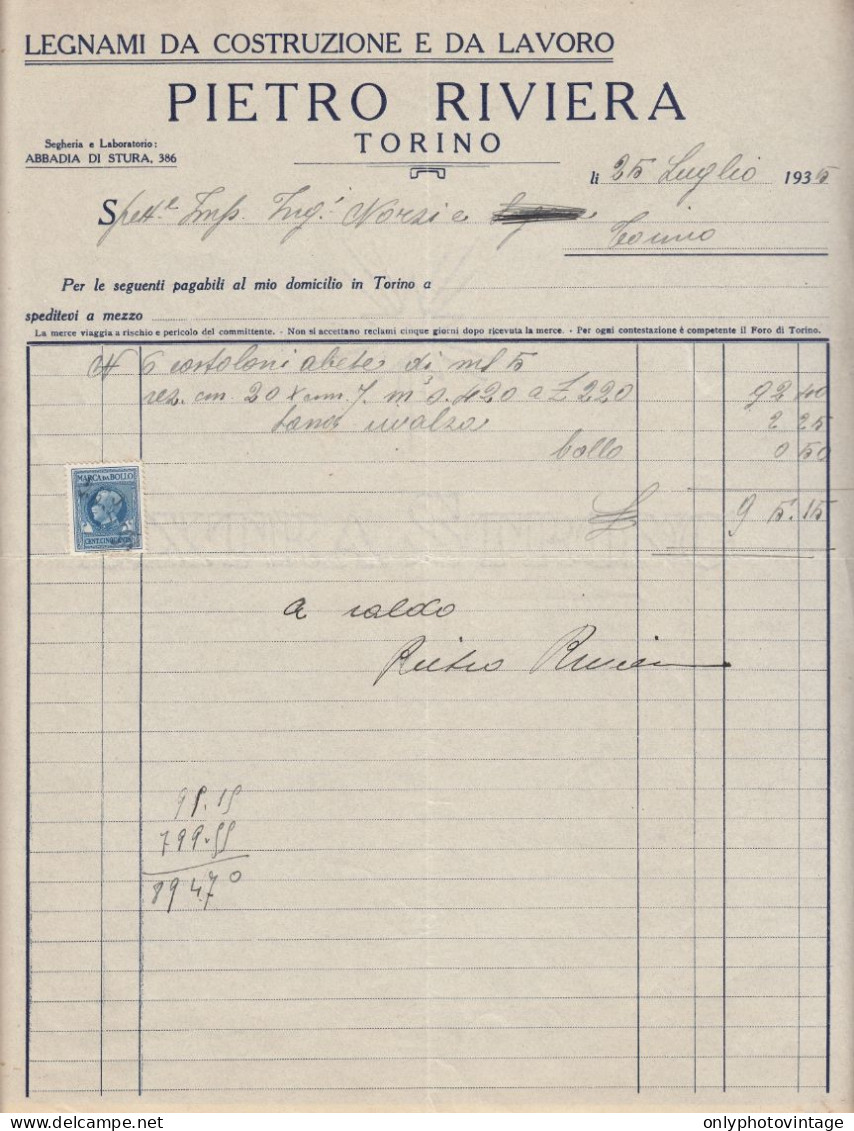 LEGNAMI DA COSTRUZIONE E DA LAVORO
PIETRO RIVIERA
TORINO
Segheria e Laboratorio:
ABBADIA DI STURA, 386
li 25 Luglio 1935
Spett.e Imp. Ing.i Norzi e
Torino
Per le seguenti pagabili al mio domicilio in Torino a
speditevi a mezzo
La merce viaggia a rischio e pericolo del committente. - Non si accettano reclami cinque giorni dopo ricevuta la merce. - Per ogni contestazione è competente il Foro di Torino.
N 6 costoloni abete di ml 5
sez. cm. 20 x cm. 7. m³ 0.420 a £ 220 92 40
rivalza 2 25
bollo 0 50
MARCA DA BOLLO
CENT. CINQUANTA
£ 95.15
a saldo
Pietro Riviera
95.15
799.55
894.70
onlyphotovintage